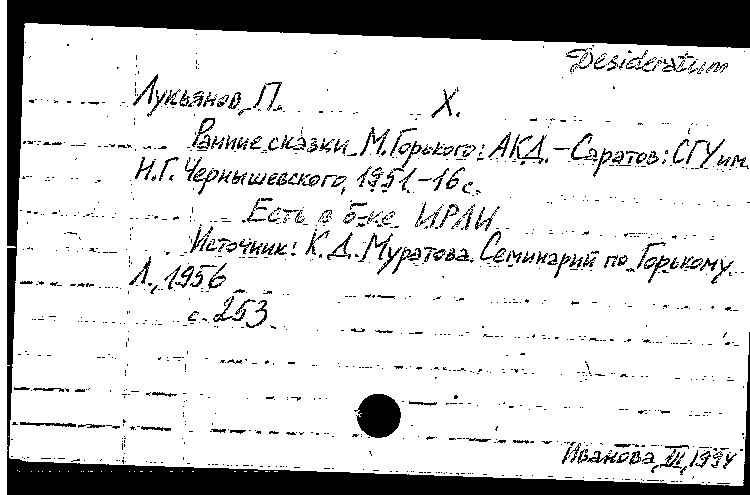 Desideratum
Лукьянов, П. Х.
Ранние сказки М. Горького: АКД. – Саратов: СГУ им.
Н.Г. Чернышевского, 1951. – 16 с.
Есть в б-ке ИРЛИ
Источник: К. Д. Муратова. Семинарий по Горькому
Л., 1956
с. 253
Иванова, III, 1994